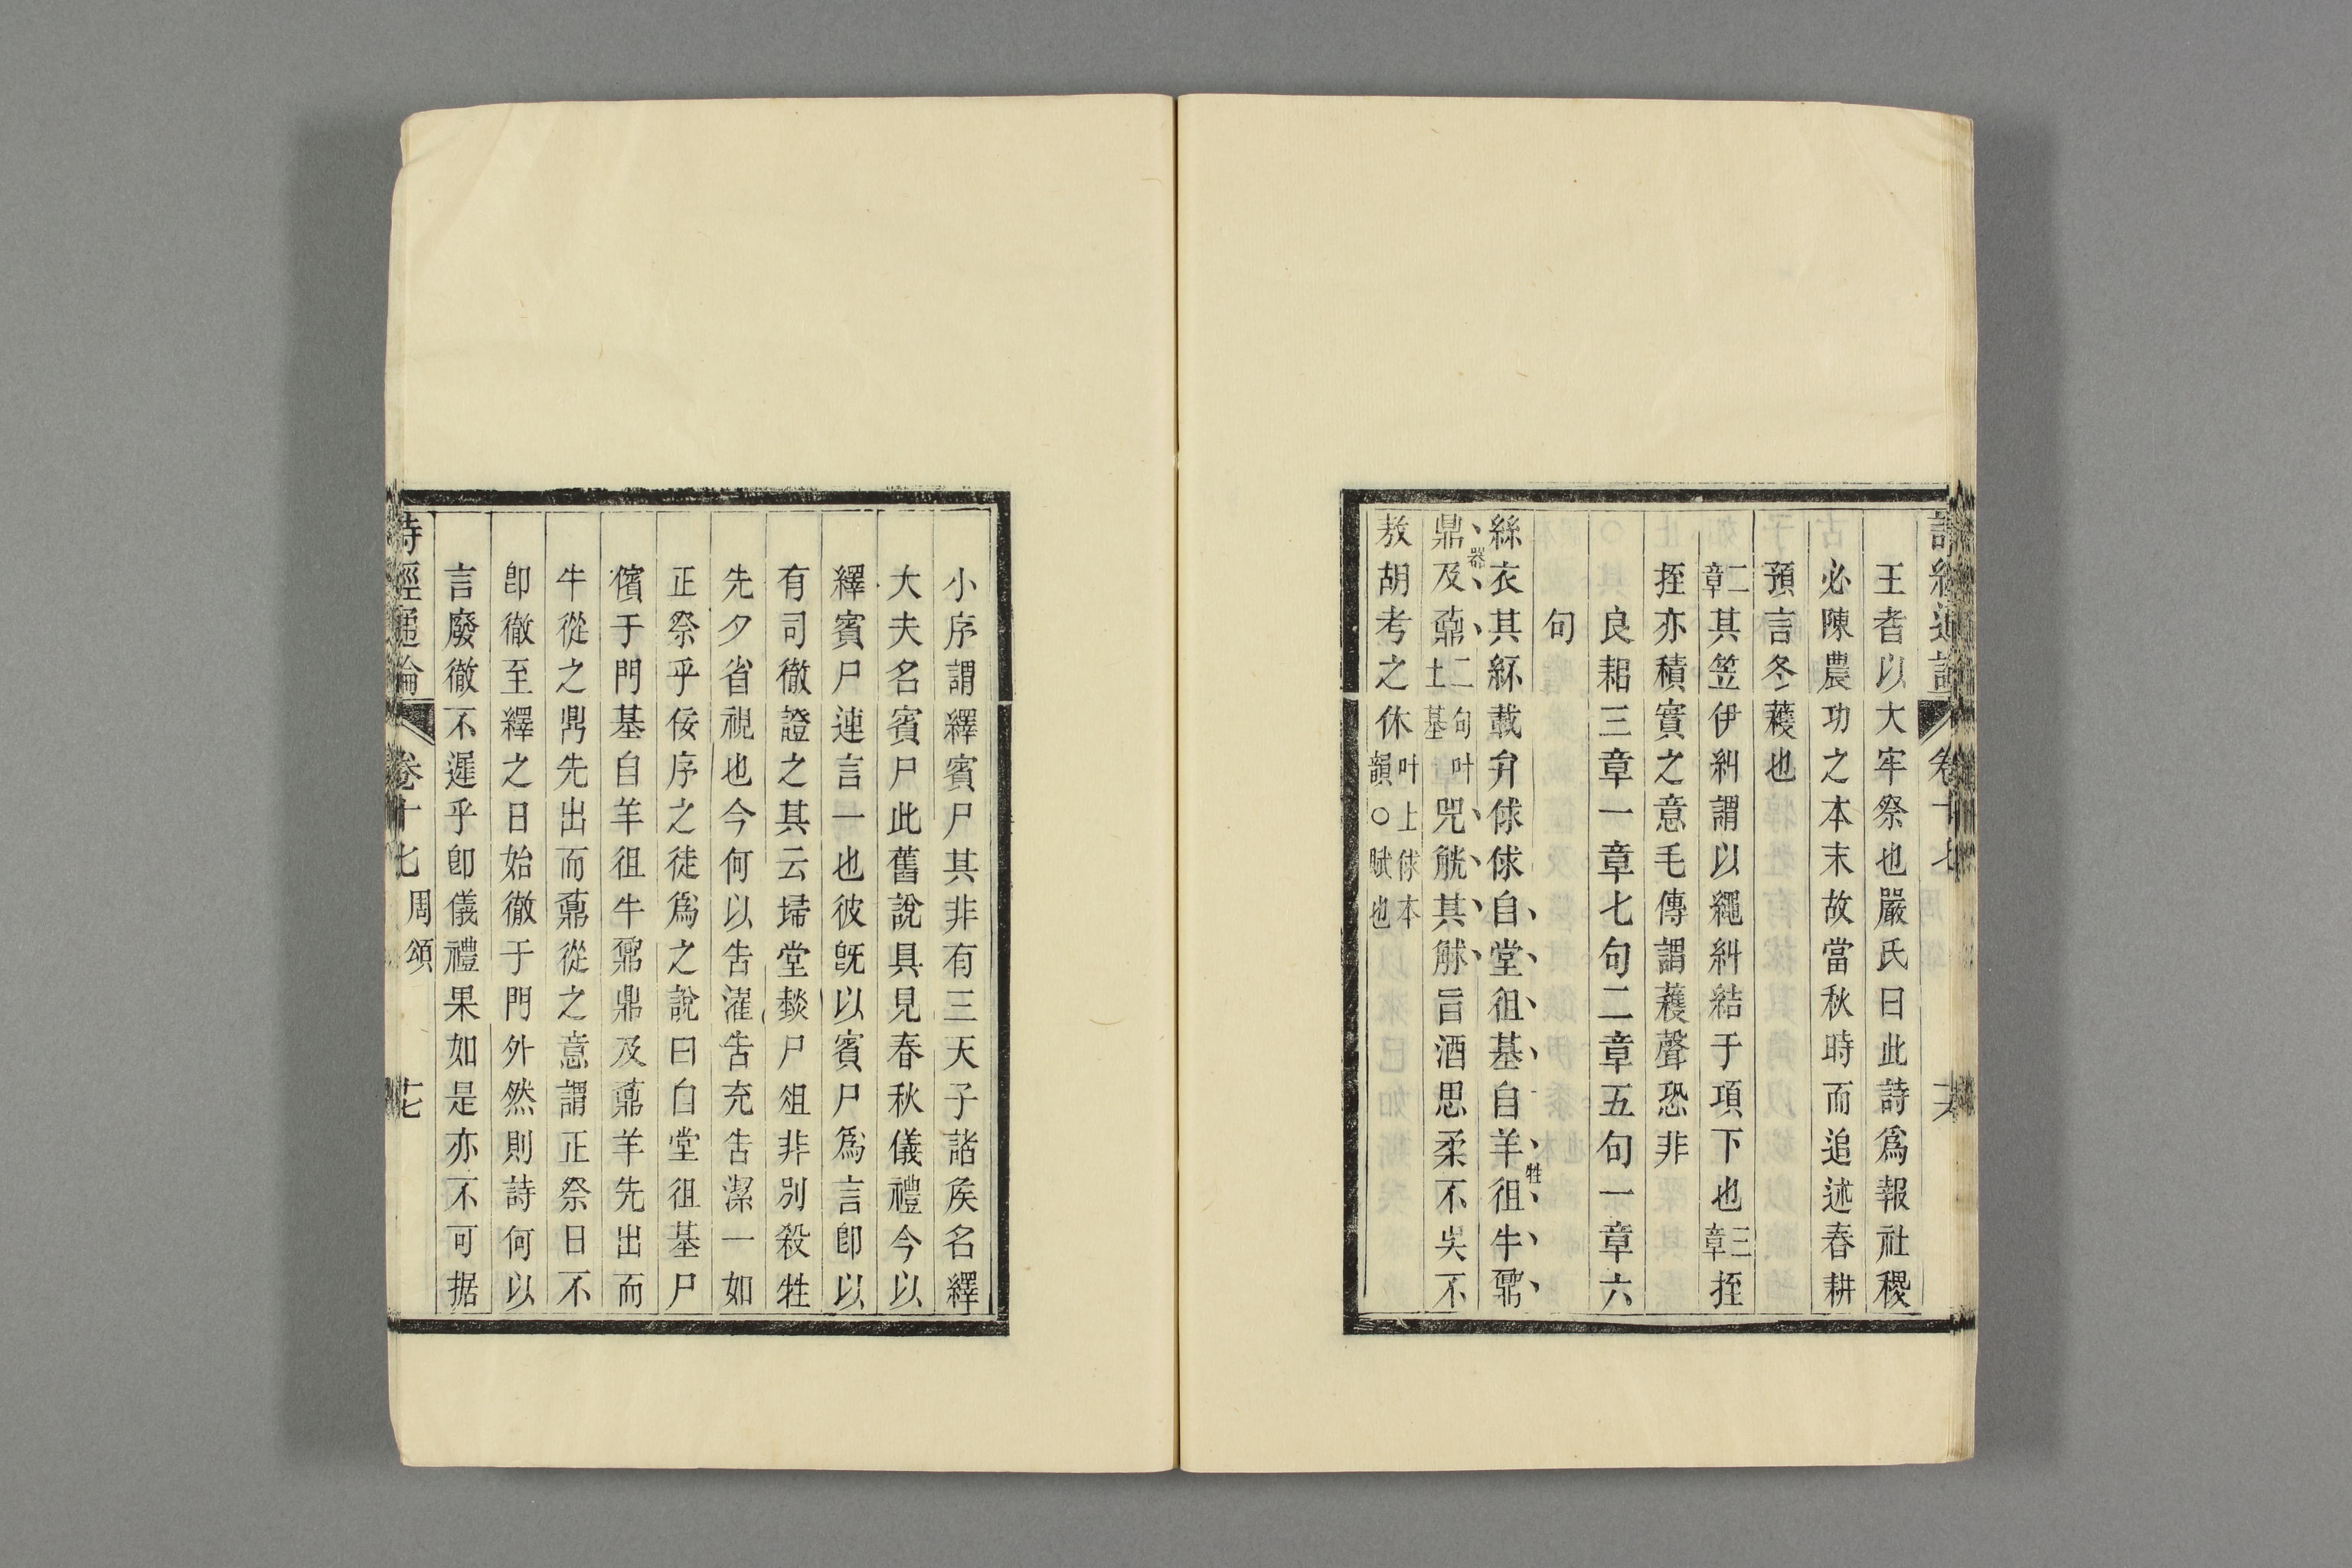 王者以大牢祭也嚴氏曰此詩爲報社稷
必陳農功之本末故當秋時而追述春耕
預言冬穫也
二章其笠伊糾謂以繩糾結于項下也三章挃
挃亦積實之意毛傳謂穫聲恐非
良耜三章一章七句二章五句一章六
句
絲衣其紑載弁俅俅自堂徂基自羊徂牛鼐
牲
鼎及鼒二句叶士基兕觥其觩旨酒思柔不吳不
器
敖胡考之休叶上俅本韻○賦也
小序謂繹賓尸其非有三天子諸矦名繹
大夫名賓尸此舊說具見春秋儀禮今以
繹賓尸連言一也彼旣以賓尸爲言卽以
有司徹證之其云埽堂燅尸俎非別殺牲
先夕省視也今何以吿濯吿充吿潔一如
正祭乎佞序之徒爲之說曰自堂徂基尸
儐于門基自羊徂牛鼐鼎及鼒羊先出而
牛從之鼎先出而鼒從之意謂正祭日不
卽徹至繹之日始徹于門外然則詩何以
言廢徹不遲乎卽儀禮果如是亦不可据
詩經通論 卷十七 周頌 十七